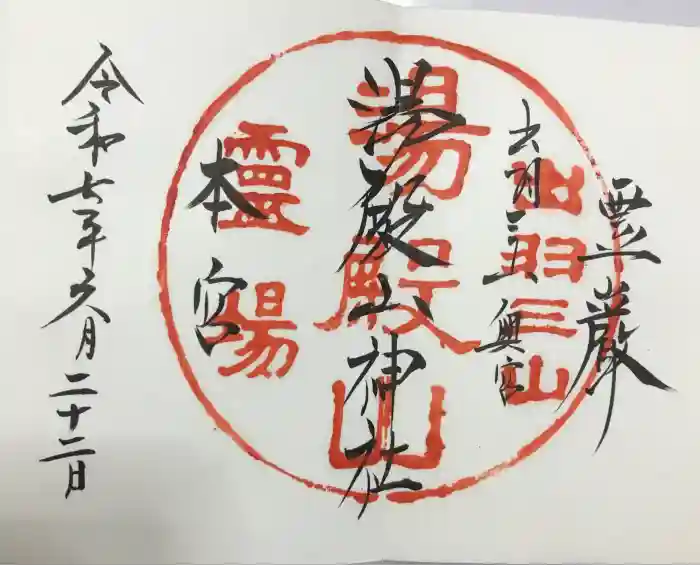 霊巌
出羽三山奥宮
湯殿山神社
本宮
令和七年六月二十二日
出羽三山
湯殿山
霊湯